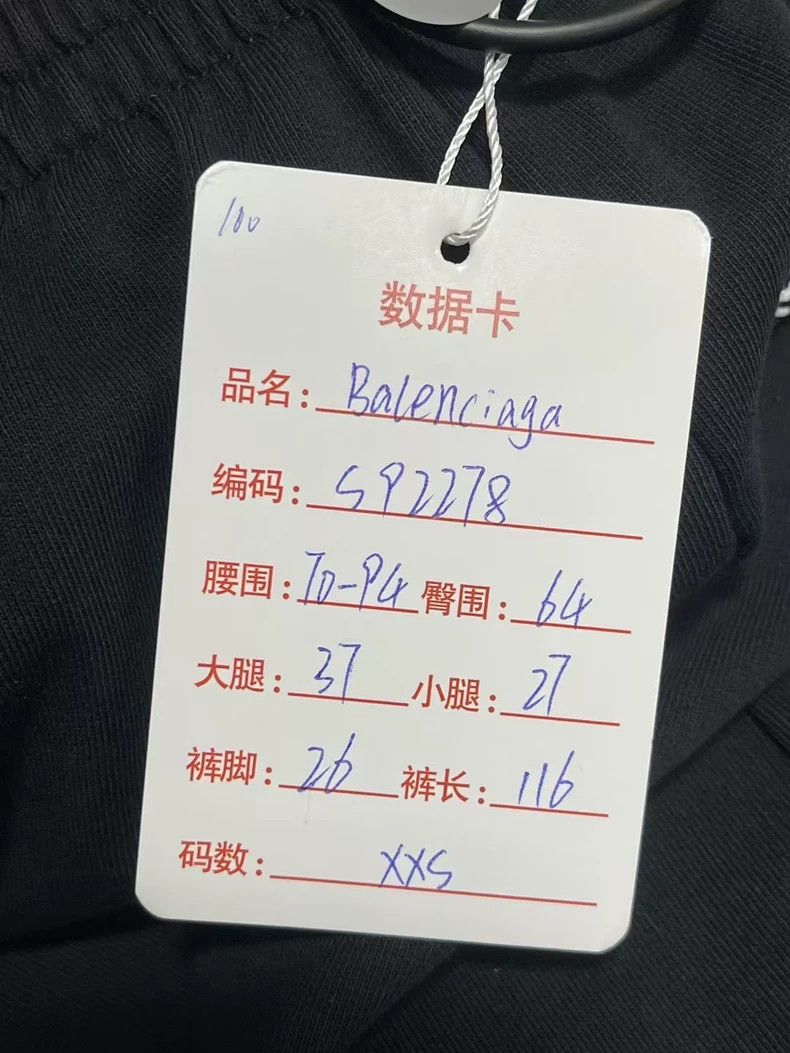 100
数据卡
品名: Balenciaga
编码: SP2278
腰围: 70-94 臀围: 64
大腿: 37 小腿: 27
裤脚: 26 裤长: 116
码数: XXS